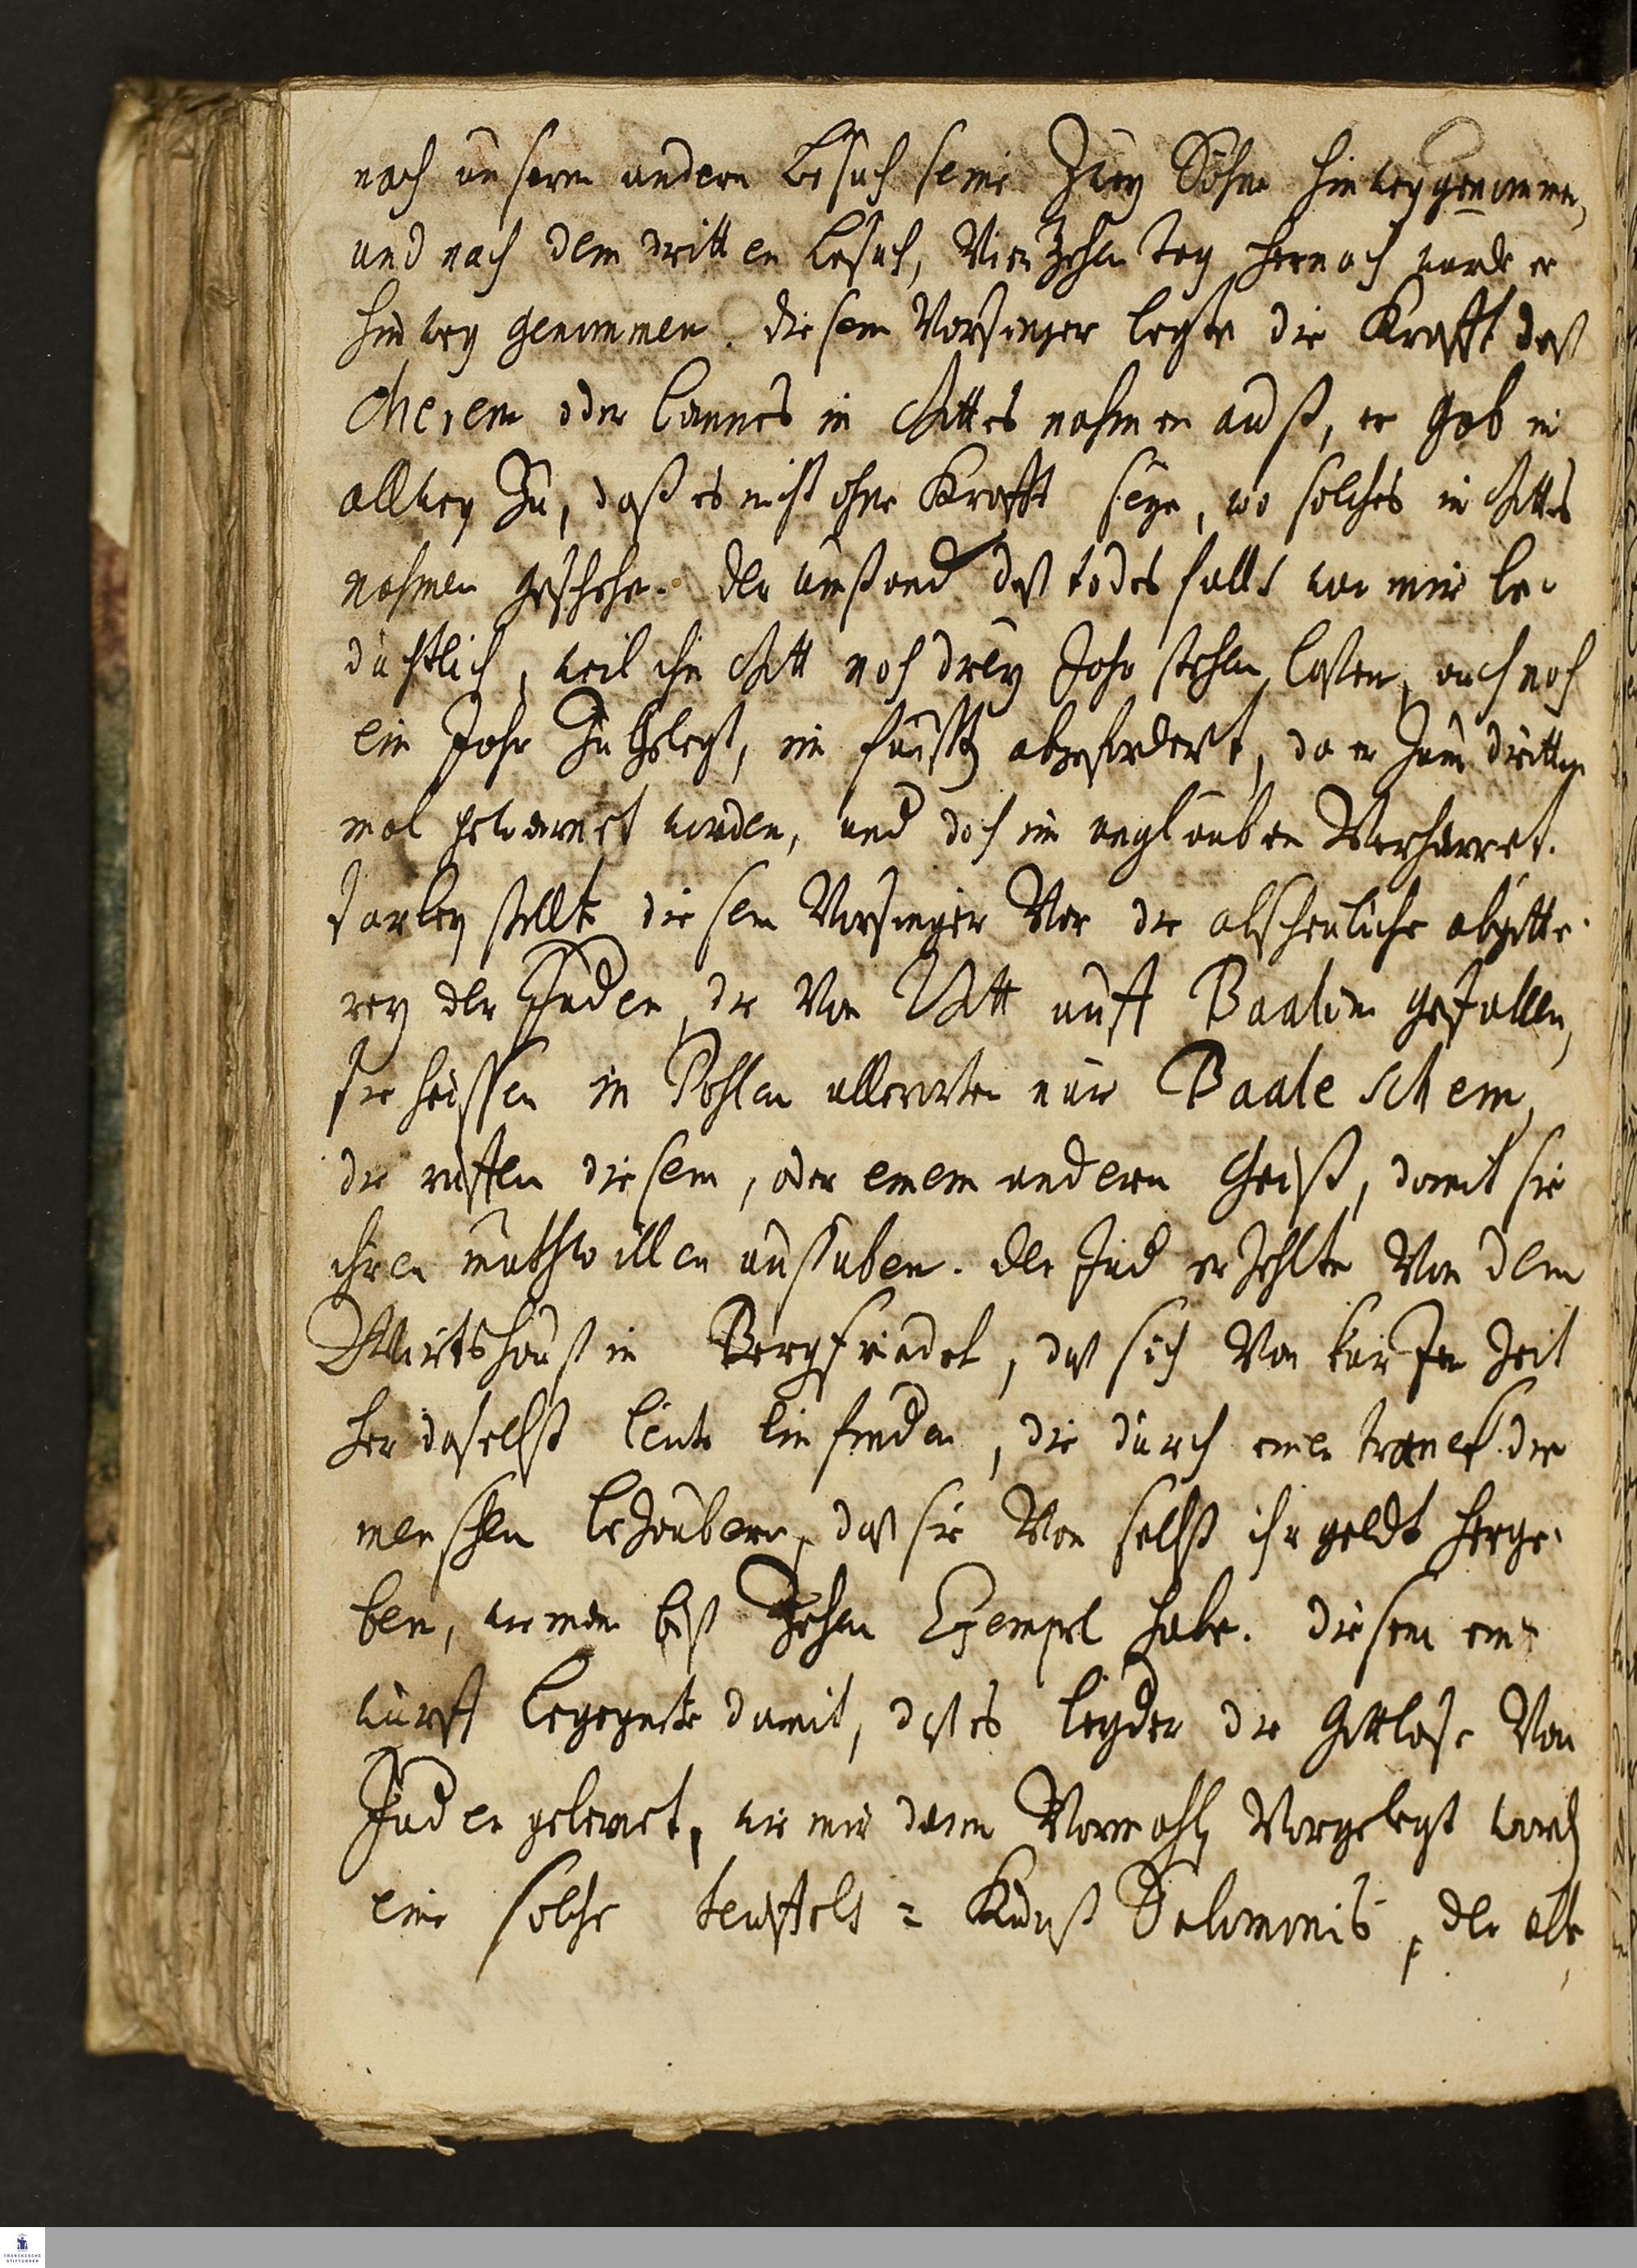 nach unserm andern besuch seine Zwey Söhne hinweggenommen,
und nach dem dritten besuch, Vierzehen tag hernach wurde er
hinweg genommen. diesem Vorsinger legte die Krafft deß
Cherem oder bannes in Gottes nahmen auß, er gab in
allweg Zu, daß es nicht ohne Krafft seye, wo solches in Gottes
nahmen geschehe. der umstand deß todesfalls war mir be-
dächtlich, weil ihn Gott noch drey Jahr stehen lassen, auch noch
ein Jahr Zu gelegt, im abgefordert, da er Zum dritten
mal gewarnet worden, und doch im unglauben Verharret.
darbey stellte diesem Vorsinger Vor die abscheuliche abgötte-
rey der Juden, die Von Gott auff Baalim gefallen,
sie heissen in Pohlen allerorten nur Baale schem,
die ruffen diesem, oder einem andern Geist, damit sie
ihren muthwillen ausüben. der Jud erzehlte Von dem
Wirtshauß in Bergfriedel, daß sich Von kurzer Zeit
her daselbst leute einfinden, die durch einen tranck die
menschen bezaubern, daß sie Von selbst ihr geldt herge-
ben, wie man biß Zehen Exempel habe. diesem ein-
wurff begegnete damit, daß es leyder die Gottlose Von
Juden gelernet, wie mir dann Vormahls Vorgelegt word
eine solche teuffels = Kunst Salomonis, der alte